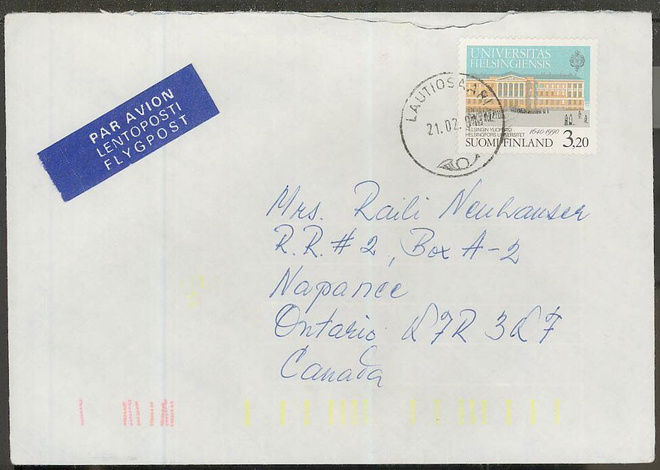 PAR AVION
LENTOPOSTI
FLYGPOST
UNIVERSITAS
HELSINGIENSIS
LAUTIOSAARI
21.02.
HELSINGIN YLIOPISTO
HELSINGFORS UNIVERSITET
1640-1990
SUOMI FINLAND 3,20
Mrs. Raili Neuhauser
R.R. # 2, Box A-2
Napanee
Ontario L7R 3L7
Canada